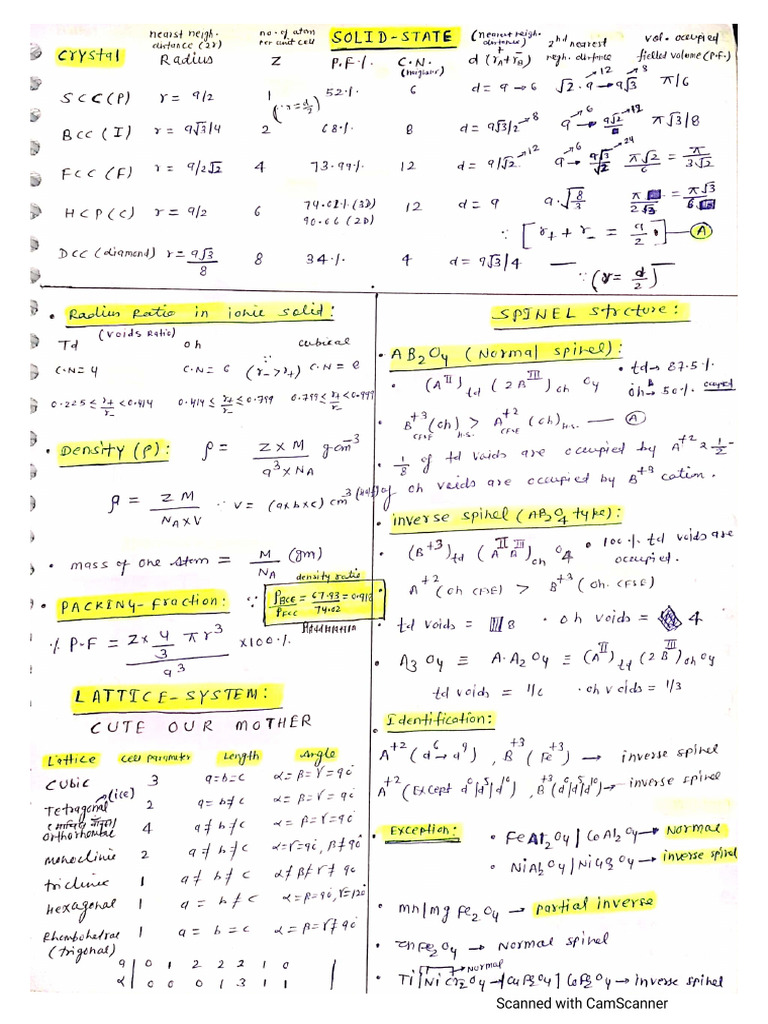 SOLID-STATE
Crystal nearest neigh. distance (2r) Radius no. of atom per unit cell Z P.F.%. C.N. (nearest neigh. distance) d (r₊+r₋) 2nd nearest negh. distance vol. occupied P.F.)
SCC(P) r = a/2 1 52% 6 d = a → 6 √2·a ↗12 → a√3 ↗8 π/6
BCC (I) r = a√3/4 2 68% 8 d = a√3/2 ↗8 a ↗6 → ↗12 π√3/8
FCC (F) r = a/2√2 4 73.99% 12 d = a/√2 ↗12 a ↗6 → ↗24 π√2/6 = π/3√2
HCP (C) r = a/2 6 74.02% (3D) 90.66 (2D) 12 d = a a·√8/3
∵ [r₊ + r₋ = a/2] — (A)
DCC (diamond) r = a√3/8 8 34% 4 d = a√3/4 —
∵ (r = d/2)
• Radius Ratio in ionic solid:
(voids Ratio)
Td oh cubical
C.N = 4 C.N = 6 (r₋ > r₊) C.N = 8
0.225 ≤ r₊/r₋ < 0.414 0.414 ≤ r₊/r₋ < 0.799 0.799 ≤ r₊/r₋ < 0.999
• Density (ρ): ρ = Z × M / a³ × N_A g cm⁻³
ρ = Z M / N_A × V ∵ V = (a×b×c) cm³
• mass of one atom = M/N_A (gm)
density ratio
• PACKING-Fraction: ∵ ρBCC/ρFCC = 67.93/74.02 = 0.918
% P.F = Z × 4/3 π r³ / a³ × 100%
LATTICE-SYSTEM:
CUTE OUR MOTHER
Lattice Cell parameter Length Angle
CUBIC 3 a=b=c α=β=γ=90°
Tetragonal (ice) 2 a=b≠c α=β=γ=90°
orthorhombic 4 a≠b≠c α=β=γ=90°
monoclinic 2 a≠b≠c α=γ=90°, β≠90
triclinic 1 a≠b≠c α≠β≠γ≠90
hexagonal 1 a=b≠c α=β=90, γ=120
Rhombohedral (trigonal) 1 a=b=c α=β=γ≠90
a | 0 1 2 2 2 1 0 |
α | 0 0 0 1 3 1 1 |
SPINEL Strcture:
• AB₂O₄ (Normal spinel):
• (A^II)td (2B^III)oh O₄ • td → 87.5%
oh → 50% occupied
• B⁺³(oh) CFSE H.S. > A⁺² (oh) CFSE H.S. — (A)
• 1/8 of td voids are occupied by A⁺² & 1/2
of oh voids are occupied by B⁺³ cation.
• inverse spinel (AB₂O₄ type):
• (B⁺³)td (A^II B^III)oh O₄ • 100% td voids are occupied.
• A⁺² (oh CFSE) > B⁺³ (oh. CFSE)
• td voids = 8 • oh voids = 4
• A₃O₄ ≡ A·A₂O₄ ≡ (A^II)td (2B^III)oh O₄
td voids = • oh voids = 1/3
• Identification:
• A⁺² (d⁶ → d⁹), B⁺³ (Fe⁺³) → inverse spinel
• A⁺² (Except d⁰/d⁵/d¹⁰), B⁺³ (d⁰/d⁵/d¹⁰) → inverse spinel
• Exception: • FeAl₂O₄ / CoAl₂O₄ → Normal
• NiAl₂O₄ / → inverse spinel
• mn/mg Fe₂O₄ → partial inverse
• ZnFe₂O₄ → Normal spinel
• Ti/NiCr₂O₄ → Normal /CuFe₂O₄/CoFe₂O₄ → inverse spinel
Scanned with CamScanner